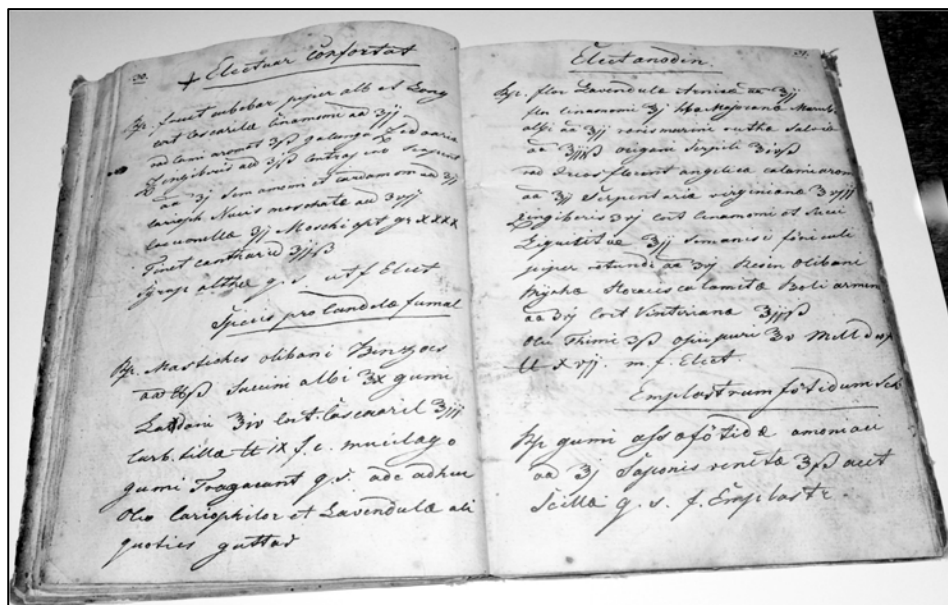 30.
+ Electuar Confortat
Rp. fruct cubebar piper alb et Long
cort Cascarilæ Cinamomi aa ʒjj
rad Cami aromat ʒβ galanga Zedoaria
Zingiberis aa ʒjβ contraj
aa ʒj Sem amomi et Cardamom aa ʒjj
Carioph. Nucis moschate aa ʒvjj
Coccionella ʒjj Moschi opt gr xxxx
Tinct cantharid ʒjjβ
Syrup althe q. s. ut f. Elect
Species pro Candelæ fumal
Rp. Mastiches olibani Benzoes
aa ℔β Succini albi ʒx gumi
Laddani ʒiv Cort. Cascaril ʒjjj
Carb. tillæ ℔ ix f. c. mucilago
gumi Tragacant q. s. ade adhuc
Oleo Cariophilor et Lavendulæ ali
quoties guttas
31.
Elect anodin.
Rp. flor Lavendula Arnicæ aa ʒjj
flor Cinamomi ʒj Hba Majorana Marub.
albi aa ʒjj rorismarini rutha Salvia
aa ʒjjjβ origani Serpili ʒivβ
rad Ireos florent angelica calami arom
aa ʒjj Serpentaria virginiana ʒvjjj
Zingiberis ʒvj Cort Cinamomi et Succi
Liquiritiæ ʒjj Sem anisi föniculi
piper rotundi aa ʒvj Resin Olibani
Myrhæ Storacis calamitæ Boli armen
aa ʒvj Cort Vintiriana ʒjjβ
Oleo Thimi ʒβ opii puri ʒv Mell
℔ xvjj. m. f. Elect
Emplastrum fötidum
Rp gumi assafötidæ amoniaci
aa ʒj Saponis venitæ ʒjβ acet
Scillæ q. s. f. Emplastr.